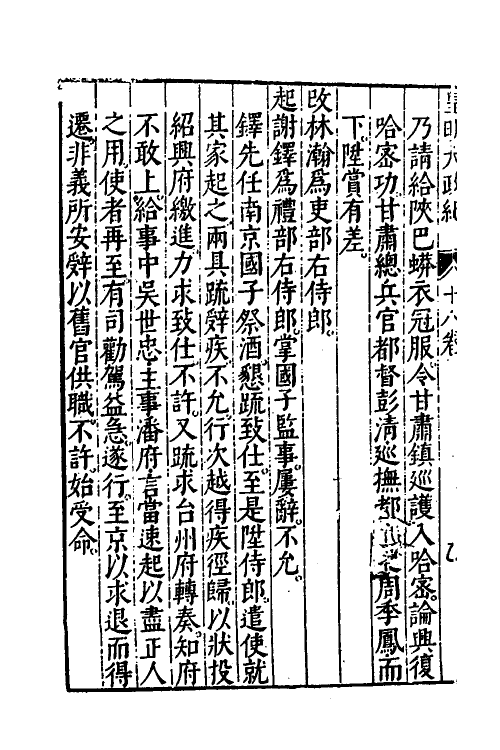 皇明大政紀 十八卷
乃請給陝巴蟒衣冠服。令甘肅鎮巡護入哈密。論興復
哈密功。甘肅總兵官都督彭清巡撫都周季鳳而
下。陞賞有差。
改林瀚爲吏部右侍郎。
起謝鐸爲禮部右侍郎。掌國子監事。屢辭。不允。
鐸先任南京國子祭酒。懇疏致仕。至是陞侍郎。遣使就
其家起之。兩具疏辤疾不允。行次越得疾徑歸。以狀投
紹興府繳進。力求致仕不許。又疏求台州府轉奏。知府
不敢上。給事中吳世忠。主事潘府言當速起以盡正人
之用。使者再至。有司勸駕益急。遂行。至京以求退而得
遷。非義所安。辤以舊官供職。不許。始受命。